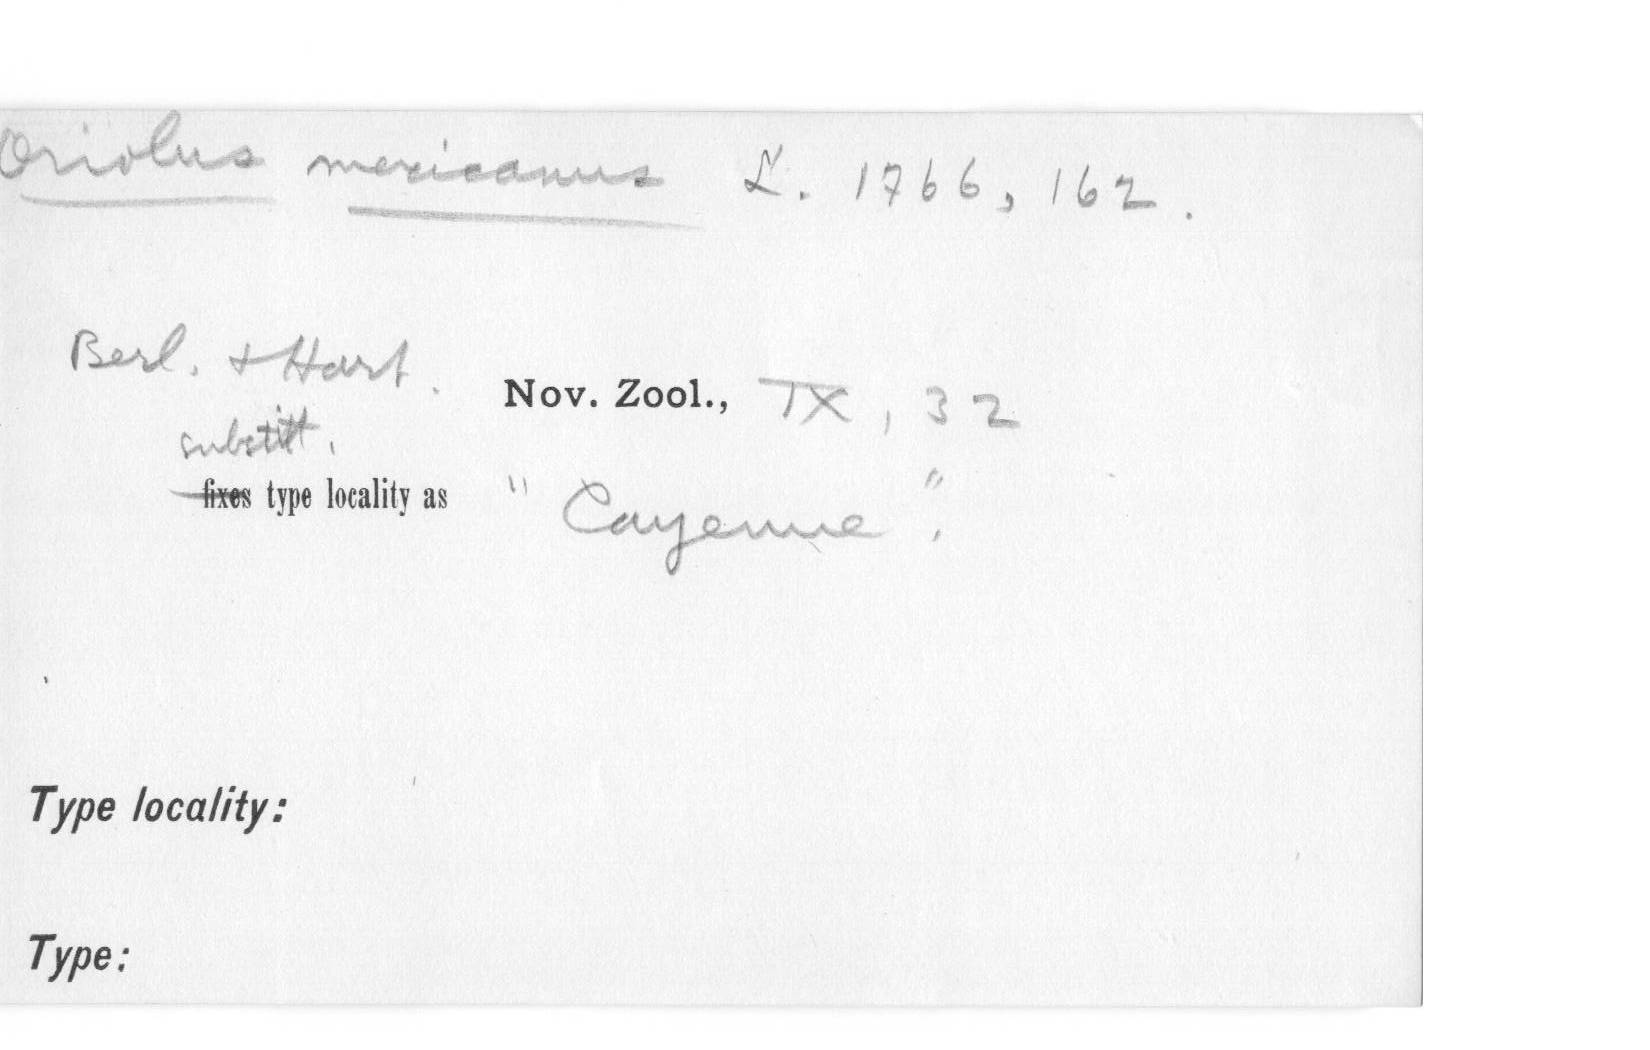 Oriolus mexicanus L. 1766, 162.
Berl. + Hart. Nov. Zool., IX, 32
substit.
fixes type locality as "Cayenne".
Type locality:
Type: